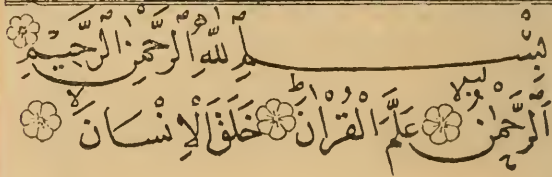 بِسْمِ اللهِ الرَّحْمٰنِ الرَّحِيْمِ
اَلرَّحْمٰنُ عَلَّمَ الْقُرْاٰنَ ط خَلَقَ الْاِنْسَانَ لا